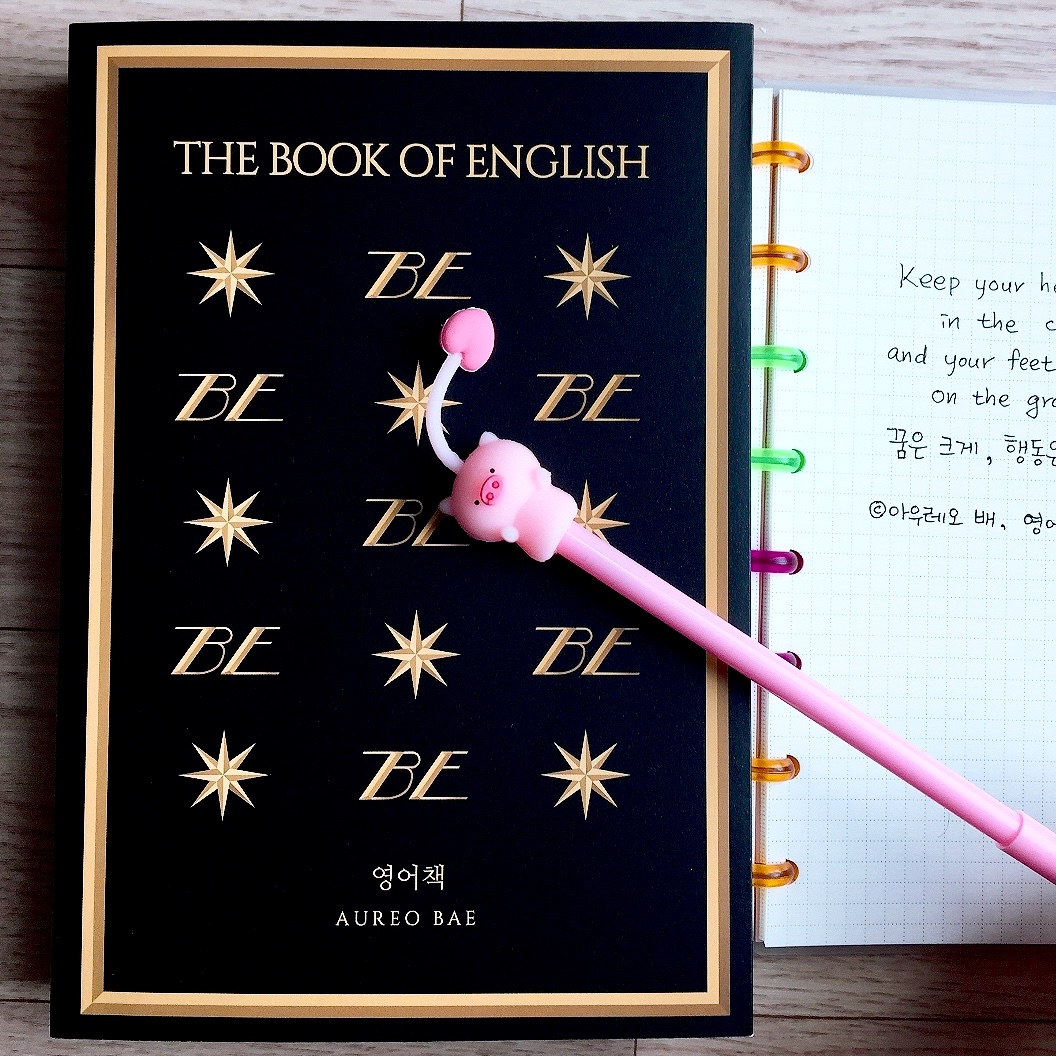 THE BOOK OF ENGLISH
BE
BE BE
BE
BE BE
BE
영어책
AUREO BAE
Keep your
in the
and your feet
on the
꿈은 크게,
©아우레오 배,